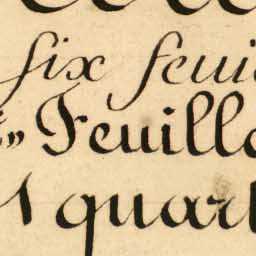 six feui
Feuille
1 quart